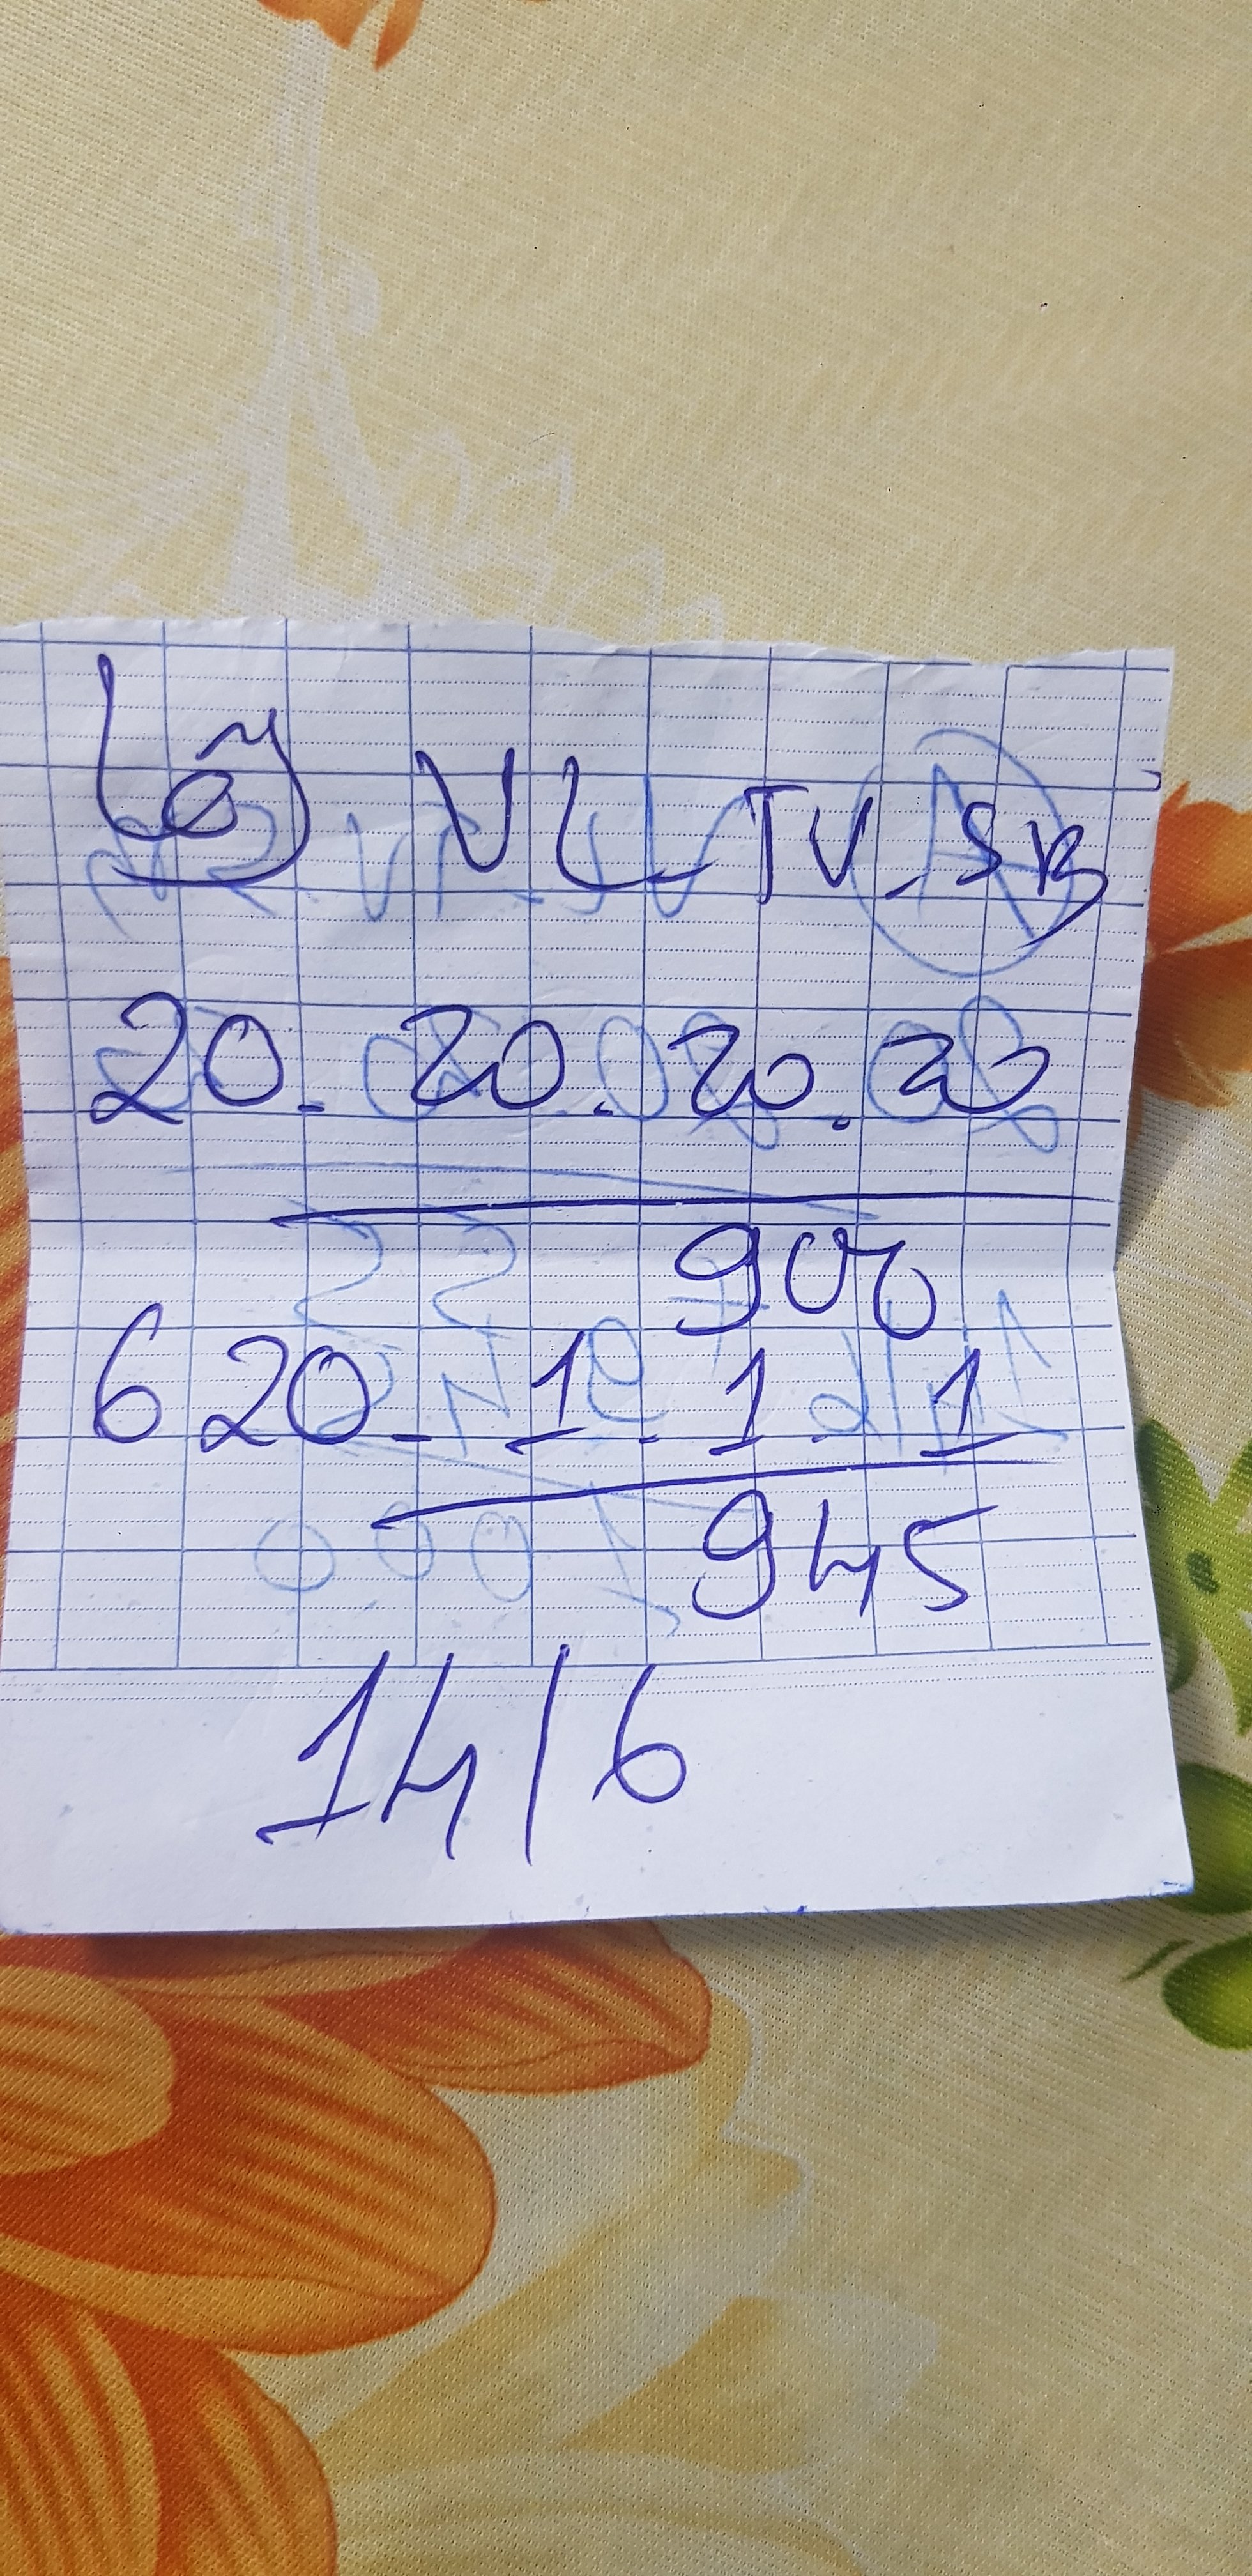 VL-TV-SB
20-20.20.20
900
620-1.1.1
945
14/6